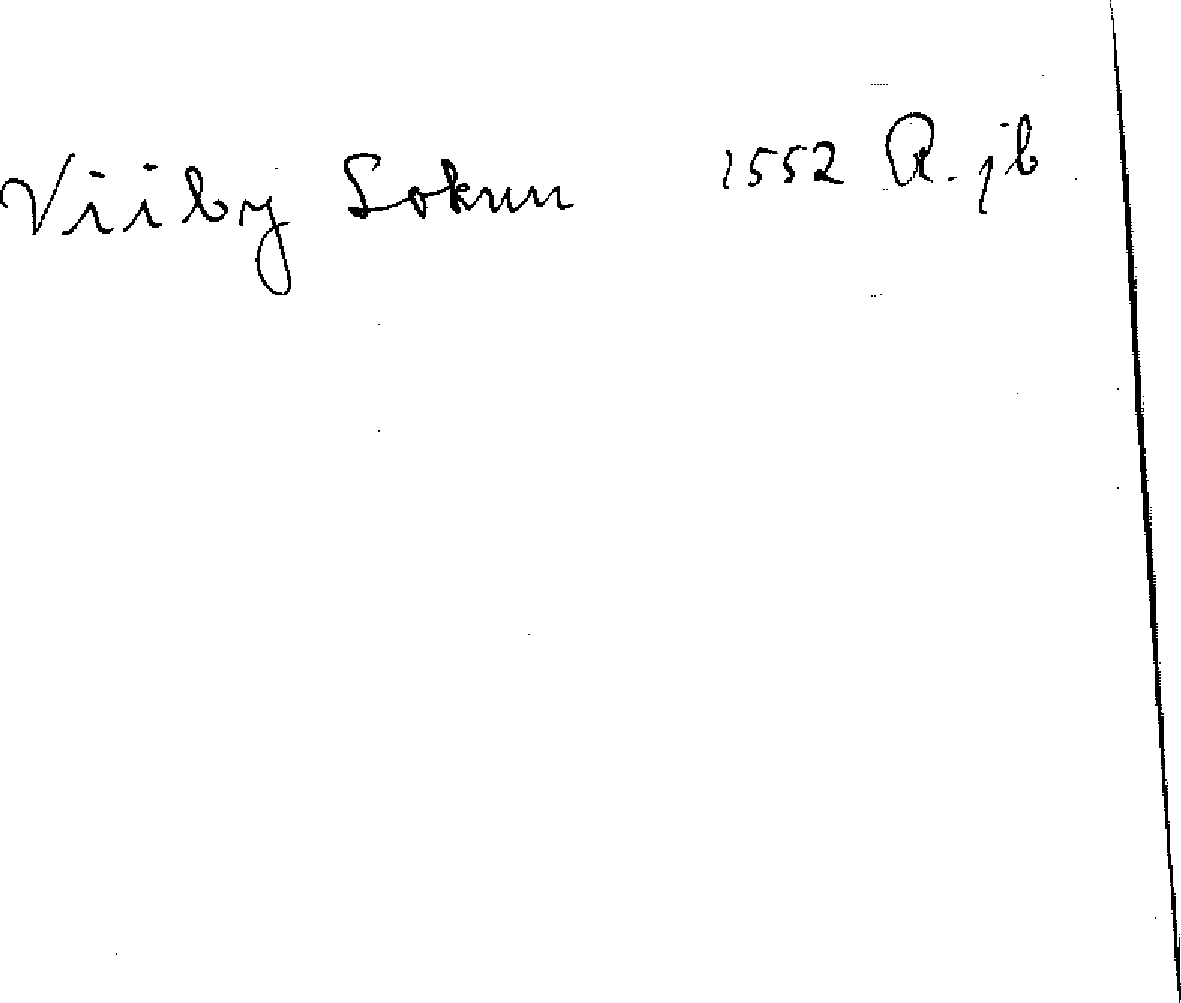 Viiby Sokun 1552 R. jb